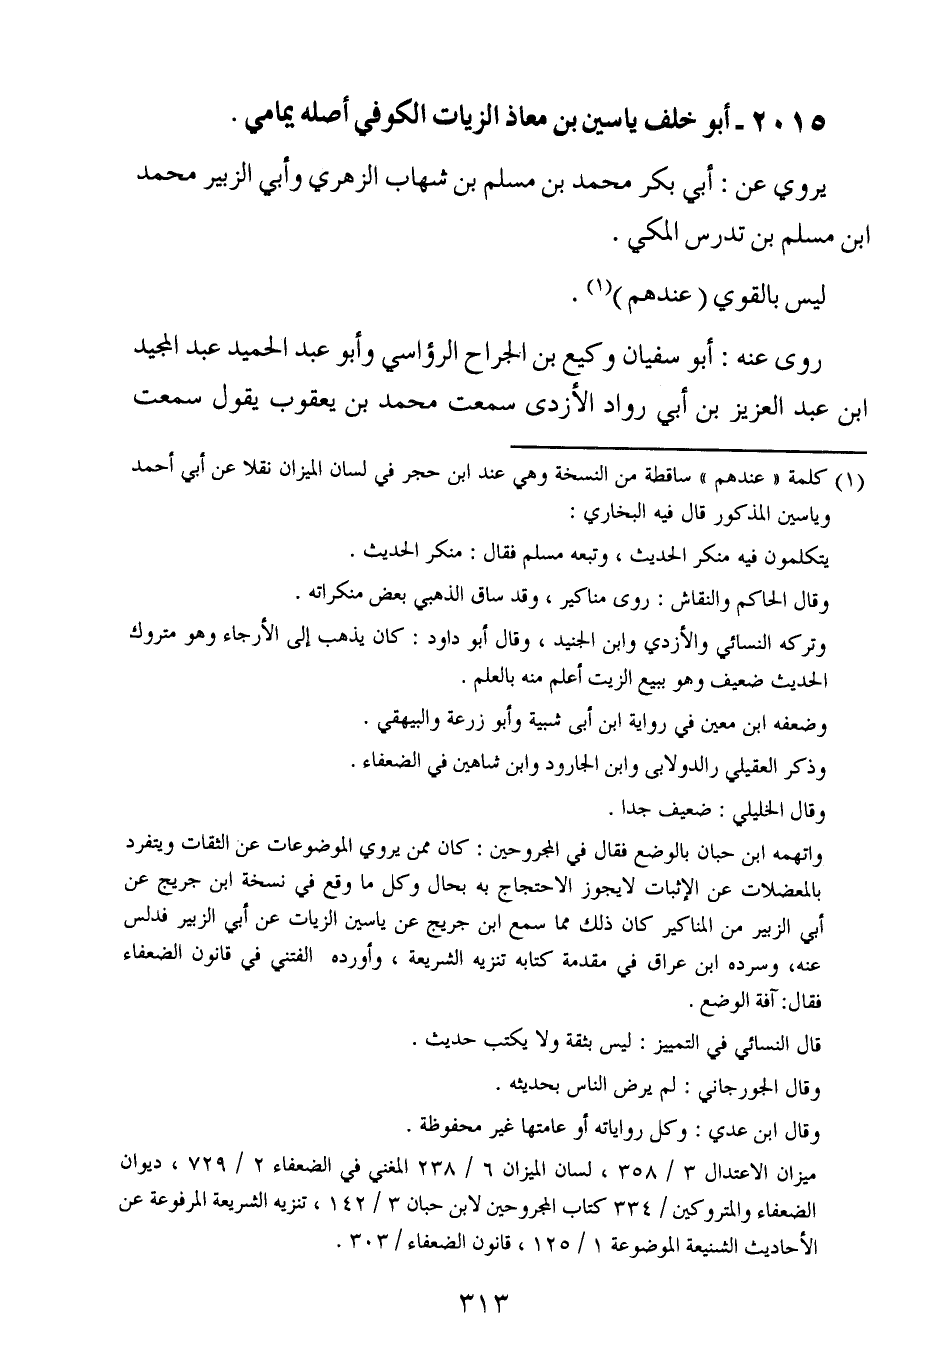 ٢٠١٥ ـ أبو خلف ياسين بن معاذ الزيات الكوفي أصله يمامي .
يروي عن : أبي بكر محمد بن مسلم بن شهاب الزهري وأبي الزبير محمد
ابن مسلم بن تدرس المكي .
ليس بالقوي ( عندهم )(١) .
روى عنه : أبو سفيان وكيع بن الجراح الرؤاسي وأبو عبد الحميد عبد المجيد
ابن عبد العزيز بن أبي رواد الأزدى سمعت محمد بن يعقوب يقول سمعت
(١) كلمة « عندهم » ساقطة من النسخة وهي عند ابن حجر في لسان الميزان نقلا عن أبي أحمد
وياسين المذكور قال فيه البخاري :
يتكلمون فيه منكر الحديث ، وتبعه مسلم فقال : منكر الحديث .
وقال الحاكم والنقاش : روى مناكير ، وقد ساق الذهبي بعض منكراته .
وتركه النسائي والأزدي وابن الجنيد ، وقال أبو داود : كان يذهب إلى الأرجاء وهو متروك
الحديث ضعيف وهو ببيع الزيت أعلم منه بالعلم .
وضعفه ابن معين في رواية ابن أبى شبية وأبو زرعة والبيهقي .
وذكر العقيلي رالدولابى وابن الجارود وابن شاهين في الضعفاء .
وقال الخليلي : ضعيف جدا .
واتهمه ابن حبان بالوضع فقال في المجروحين : كان ممن يروي الموضوعات عن الثقات ويتفرد
بالمعضلات عن الإثبات لايجوز الاحتجاج به بحال وكل ما وقع في نسخة ابن جريج عن
أبي الزبير من المناكير كان ذلك مما سمع ابن جريج عن ياسين الزيات عن أبي الزبير فدلس
عنه، وسرده ابن عراق في مقدمة كتابه تنزيه الشريعة ، وأورده الفتني في قانون الضعفاء
فقال: آفة الوضع .
قال النسائي في التمييز : ليس بثقة ولا يكتب حديث .
وقال الجورجاني : لم يرض الناس بحديثه .
وقال ابن عدي : وكل رواياته أو عامتها غير محفوظة .
ميزان الاعتدال ٣ / ٣٥٨ ، لسان الميزان ٦ / ٢٣٨ المغني في الضعفاء ٢ / ٧٢٩ ، ديوان
الضعفاء والمتروكين / ٣٣٤ كتاب المجروحين لابن حبان ٣ / ١٤٢ ، تنزيه الشريعة المرفوعة عن
الأحاديث الشنيعة الموضوعة ١ / ١٢٥ ، قانون الضعفاء / ٣٠٣ .
٣١٣